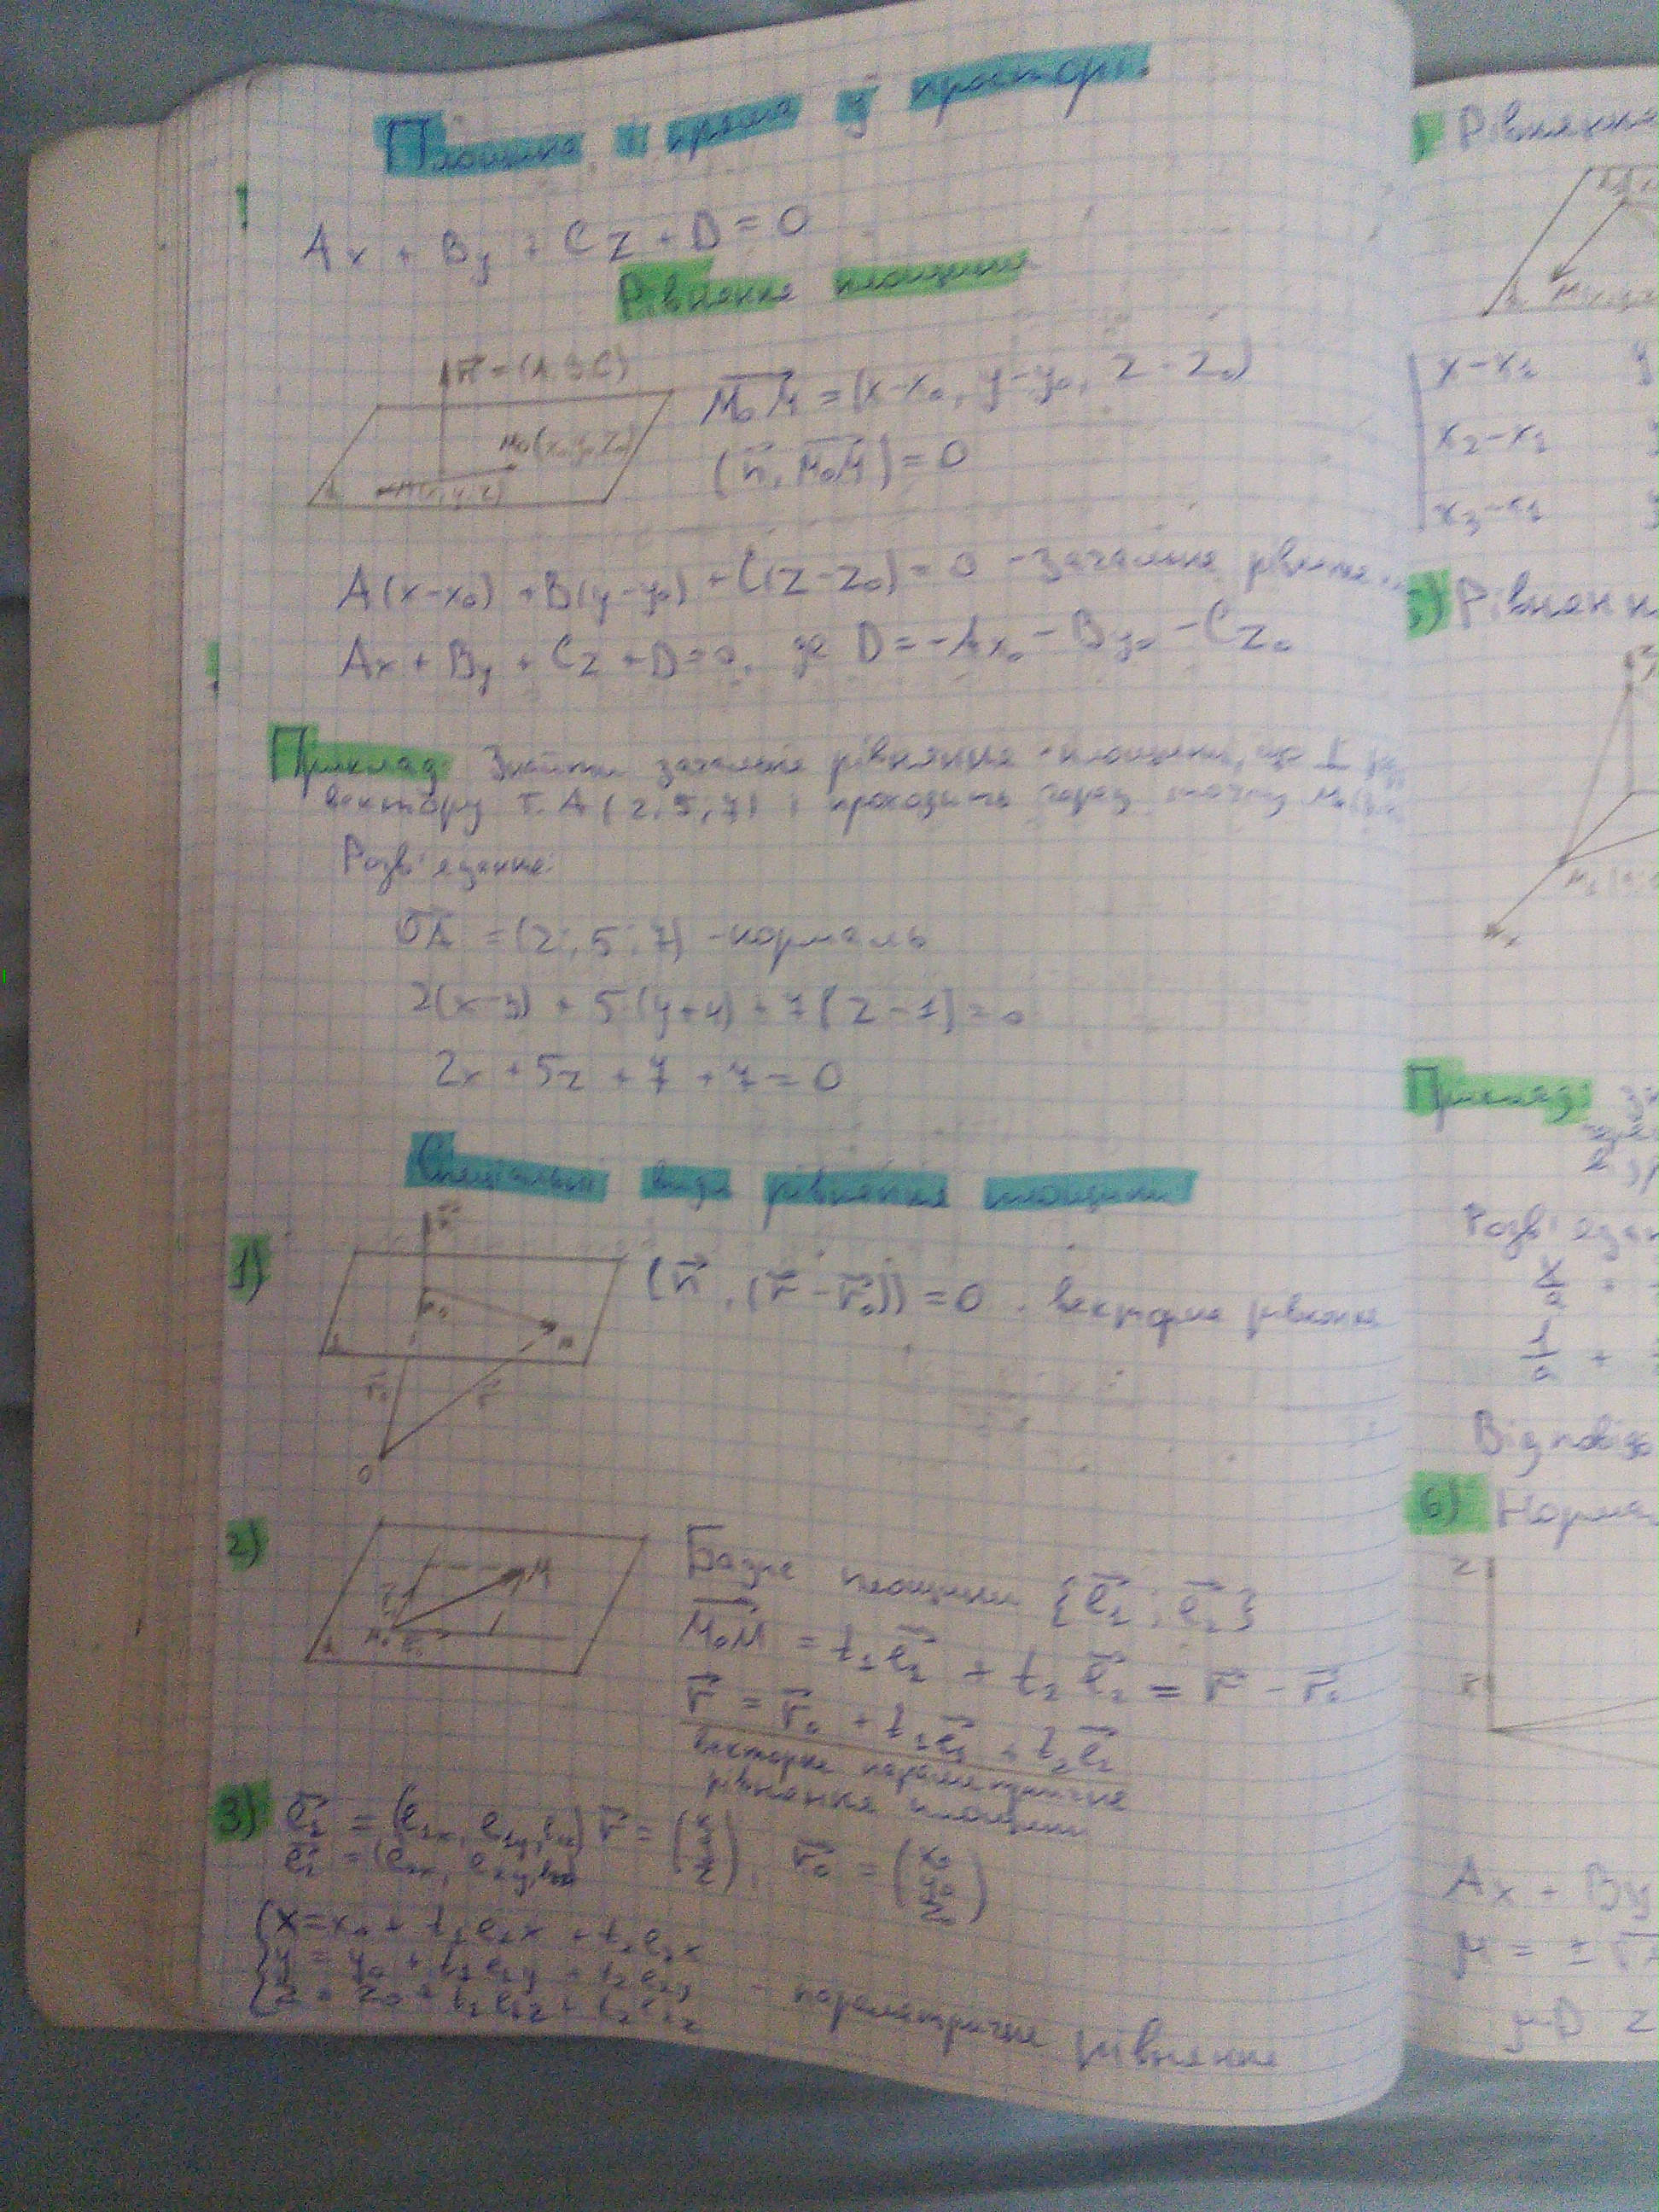 Площина і пряма у просторі.
Ax + By + Cz + D = 0
Рівняння площини
n⃗ = (A, B, C)
M₀(x₀, y₀, z₀)
M(x, y, z)
M₀M⃗ = (x-x₀, y-y₀, z-z₀)
(n⃗, M₀M⃗) = 0
A(x-x₀) + B(y-y₀) + C(z-z₀) = 0 - загальне рівняння
Ax + By + Cz + D = 0, де D = -Ax₀ - By₀ - Cz₀
Приклад: Знайти загальне рівняння площини, що ⊥
вектору т. A(2; 5; 7) і проходить через точку M₀
Розв'язання:
OA⃗ = (2; 5; 7) - нормаль
2(x-3) + 5(y+4) + 7(z-1) = 0
2x + 5z + 7 + 7 = 0
Спеціальні види рівняння площини
1)
(n⃗, (r⃗ - r⃗₀)) = 0 - векторне рівняння
r⃗₀
O
2)
M
M₀
Базис площини {e⃗₁; e⃗₂}
M₀M⃗ = t₁e⃗₁ + t₂e⃗₂ = r⃗ - r⃗₀
r⃗ = r⃗₀ + t₁e⃗₁ + t₂e⃗₂
Векторне параметричне
рівняння площини
3) e⃗₁ = (e₁ₓ, e₁y, e₁z) r⃗ = (x y z), r⃗₀ = (x₀ y₀ z₀)
e⃗₂ = (e₂ₓ, e₂y, e₂z)
{x = x₀ + t₁e₁x + t₂e₂x
y = y₀ + t₁e₁y + t₂e₂y
z = z₀ + t₁e₁z + t₂e₂z - параметричне рівняння
) Рівняння
x-x₁
x₂-x₁
x₃-x₁
5) Рівнян
Приклад:
Розв'язан
x/a
1/a +
Відповідь
6) Норма
z
Ax + By
μ = ±
μD